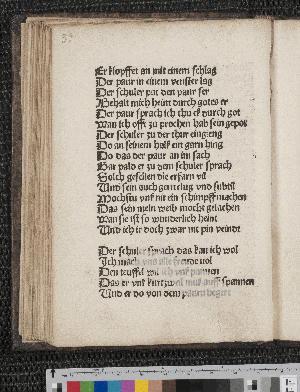 Er klopffet an mit einem schlag
Der paur in einem venster lag
Der schuler pat den paur ser
Behalt mich heint durch gotes er
Der paur sprach ich thu es durch got
Wan ich offt zu prochen hab sein gepot
Der schuler zu der thur eingieng
Do an seinem hals ein garn hing
Do das der paur an im sach
Gar pald er zu dem schuler sprach
Solch geschen die erfarn
Und sein auch gern clug und subtil
Mochstu uns mit ein schimpff machen
Das sein mein weib mocht gelachen
Wan sie ist so wunderlich heint
Und ich ir doch zwar nit pin veindt
Der schuler sprach das kan ich wol
Ich mach uns alle freude vol
Den teuffel wil ich uns pannen
Das er uns kurtzweil mus auff spannen
Und er do von dem pauren begert